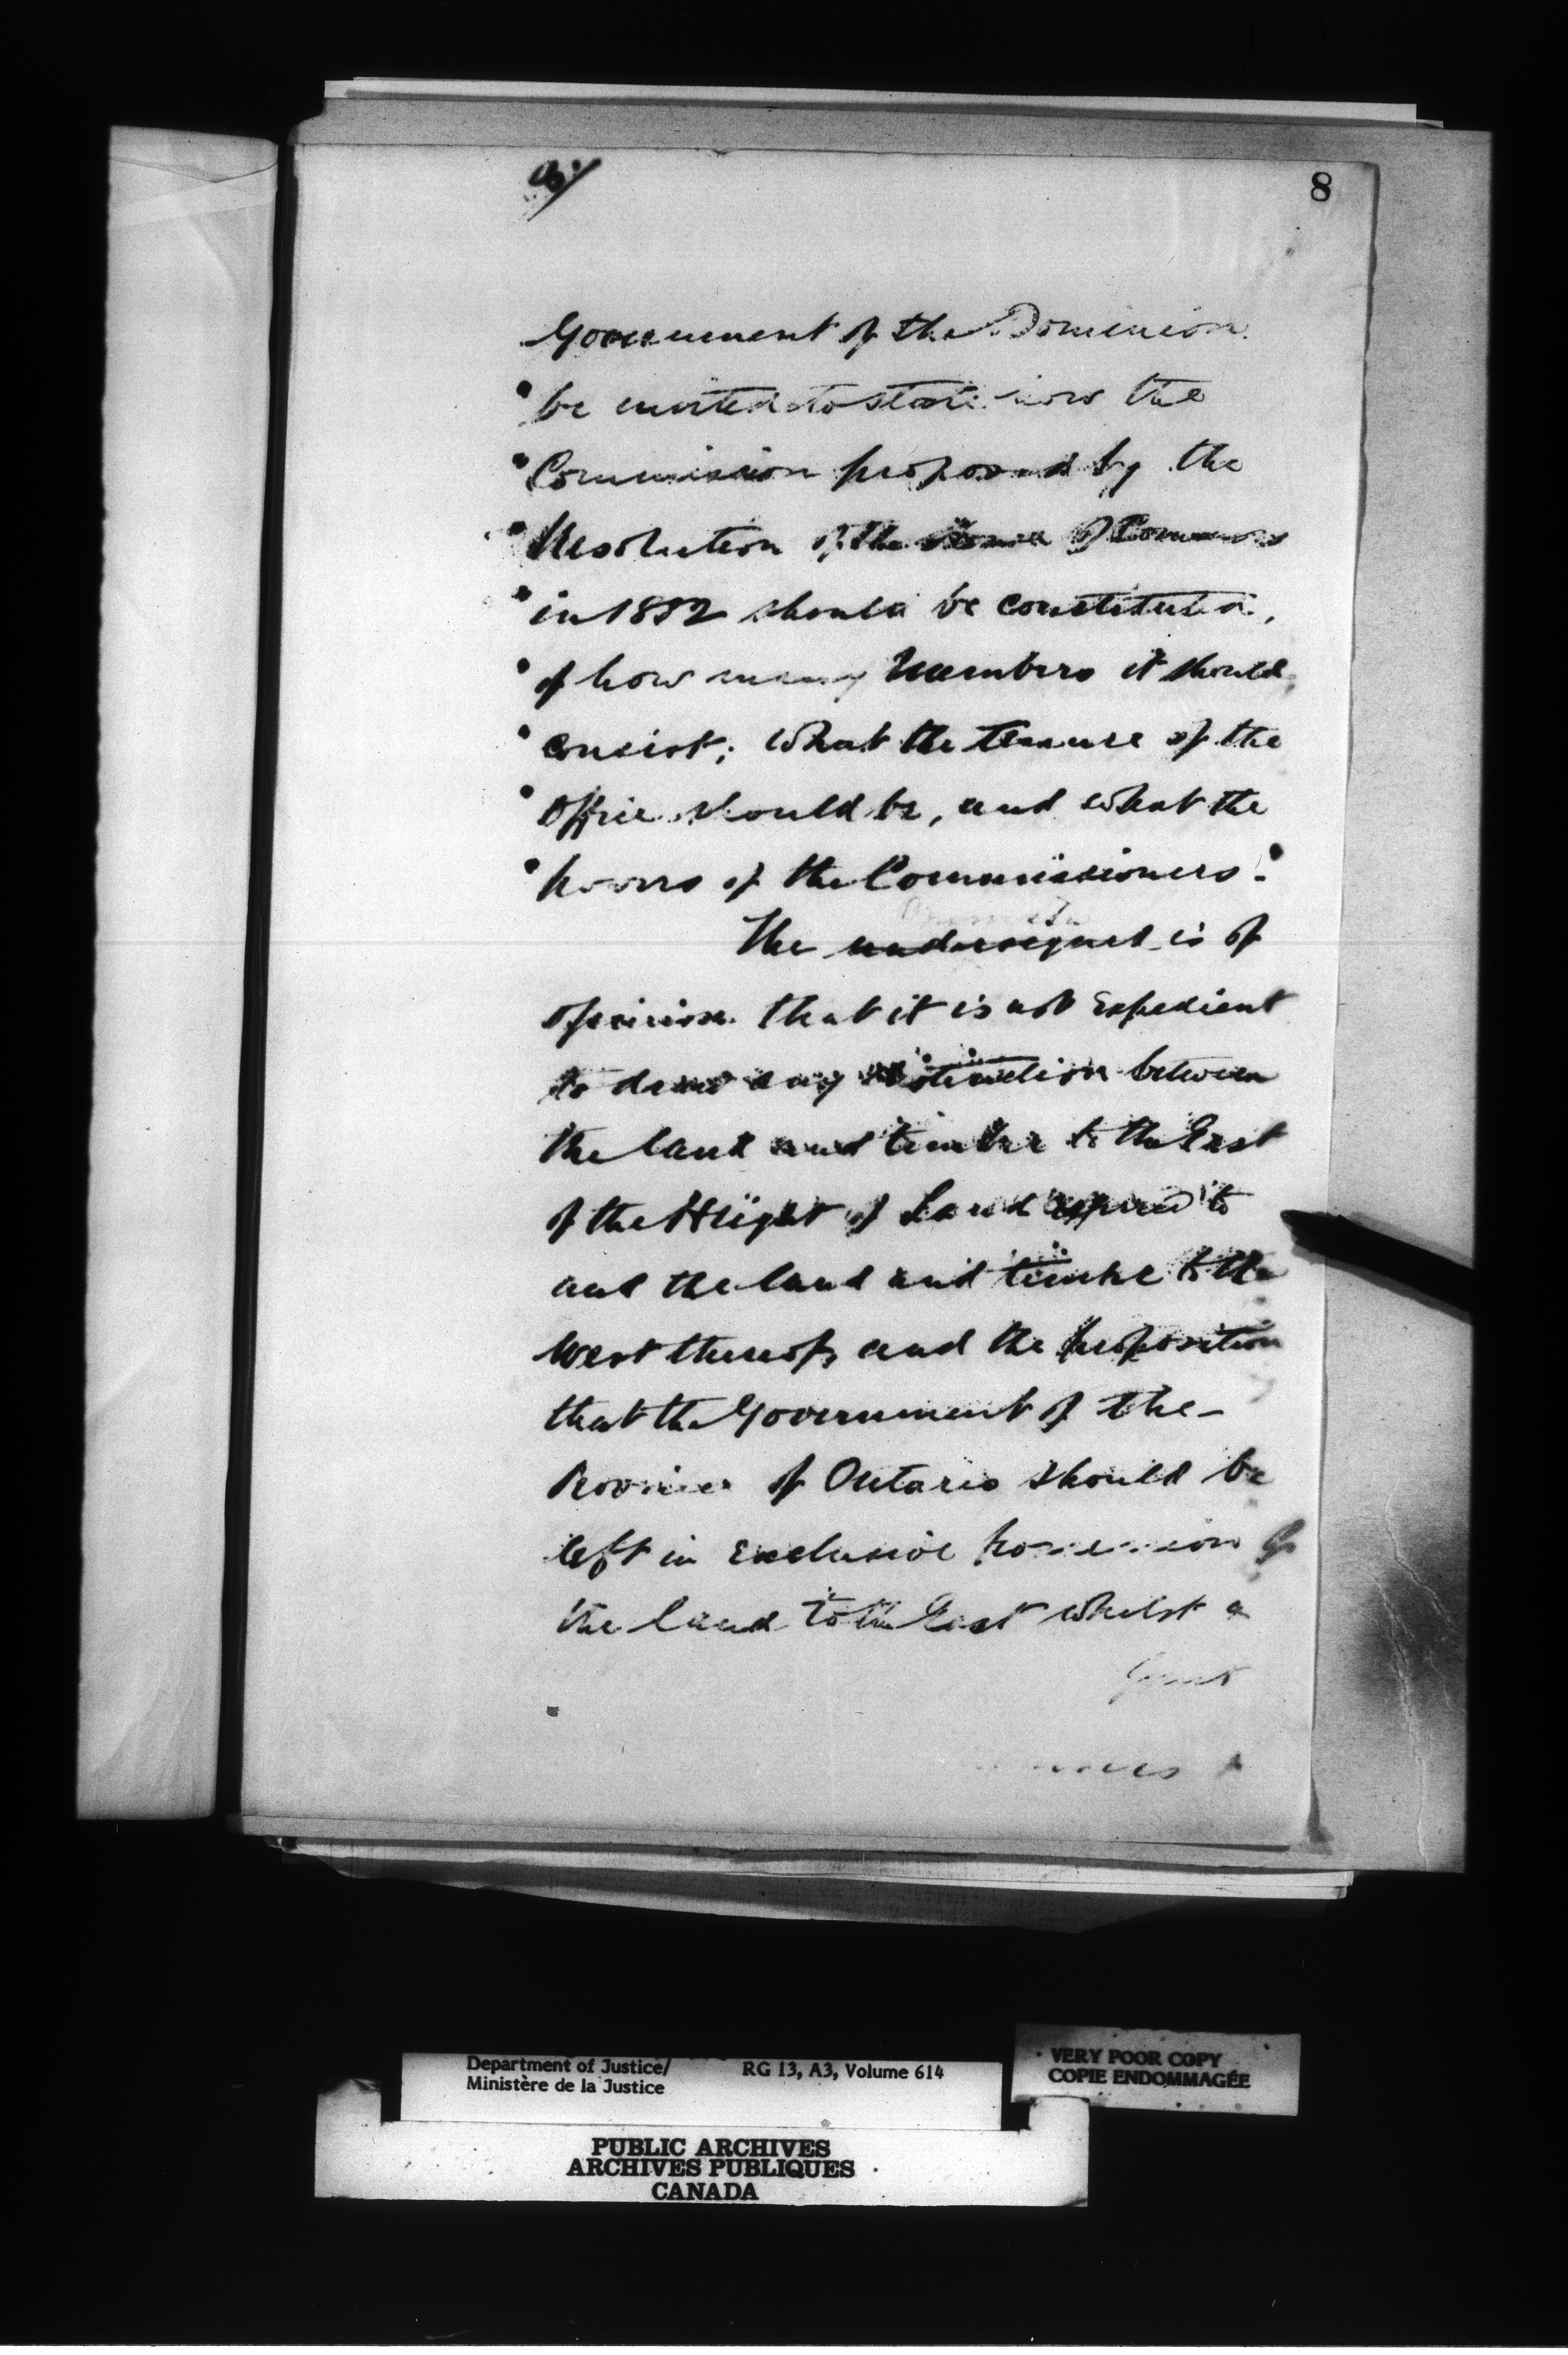 8/
8
Government of the Dominion
" be invited to state how the
" Commission proposed by the
" Resolution of the House of Commons
" in 1882 should be constituted,
" of how many Members it should
" consist; what the tenure of the
" Office should be, and what the
" powers of the Commissioners."
The undersigned is of
opinion that it is not expedient
to draw any distinction between
the land and timber to the East
of the Height of Land to
and the land and timber to the
West thereof, and the proposition
that the Government of the -
Province of Ontario should be
left in exclusive possession of
the land to the East whilst a
Department of Justice/
Ministère de la Justice
RG 13, A3, Volume 614
VERY POOR COPY
COPIE ENDOMMAGÉE
PUBLIC ARCHIVES
ARCHIVES PUBLIQUES
CANADA